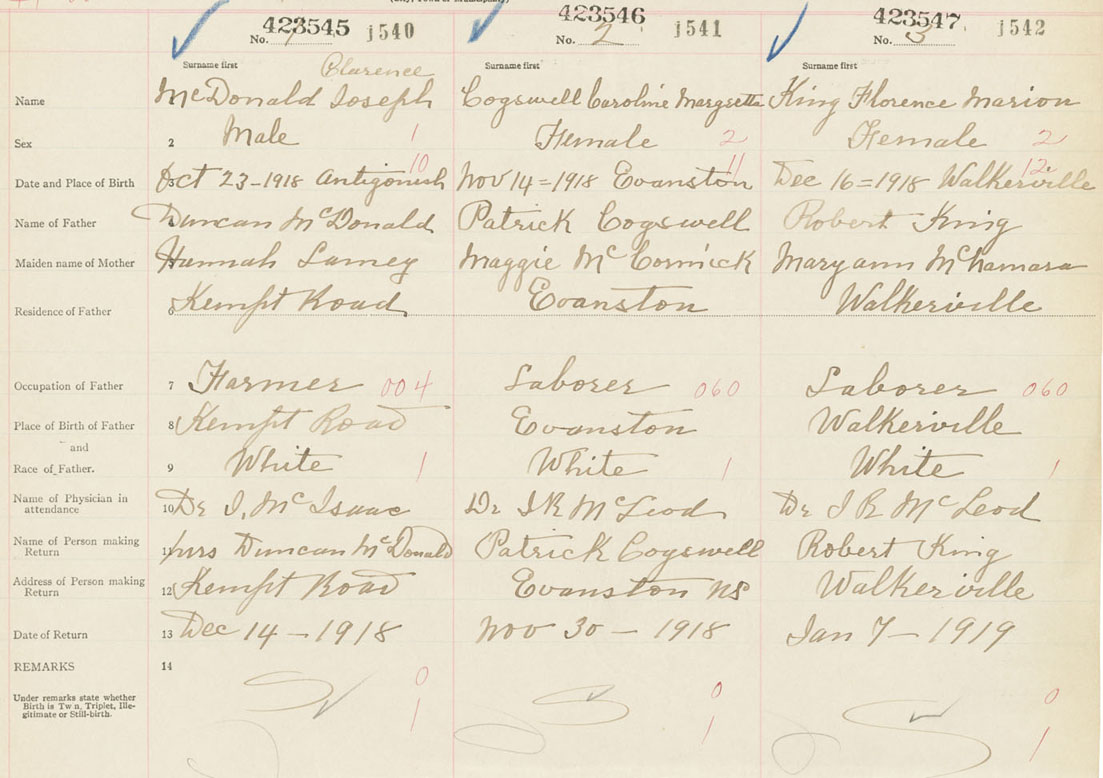 (City, Town or Municipality)
423545 j540 423546 j541 423547 j542
No. 1 No. 2 No. 3
Surname first Surname first Surname first
Clarence
Name McDonald Joseph Cogswell Caroline Margrette King Florence Marion
Sex 2 Male 1 Female 2 Female 2
10 11 12
Date and Place of Birth Oct 23-1918 Antigonish Nov 14=1918 Evanston Dec 16=1918 Walkerville
Name of Father Duncan McDonald Patrick Cogswell Robert King
Maiden name of Mother Hannah Lamey Maggie McCormick Maryann McNamara
Residence of Father 6 Kempt Road Evanston Walkerville
Occupation of Father 7 Farmer 004 Laborer 060 Laborer 060
Place of Birth of Father 8 Kempt Road Evanston Walkerville
and
Race of Father. 9 White 1 White 1 White 1
Name of Physician in attendance 10 Dr I. McIsaac Dr I R McLeod Dr I R McLeod
Name of Person making Return 11 Mrs Duncan McDonald Patrick Cogswell Robert King
Address of Person making Return 12 Kempt Road Evanston NS Walkerville
Date of Return 13 Dec 14-1918 Nov 30-1918 Jan 7-1919
REMARKS 14
0 0 0
Under remarks state whether
Birth is Tw n, Triplet, Ille-
gitimate or Still-birth.
1 1 1